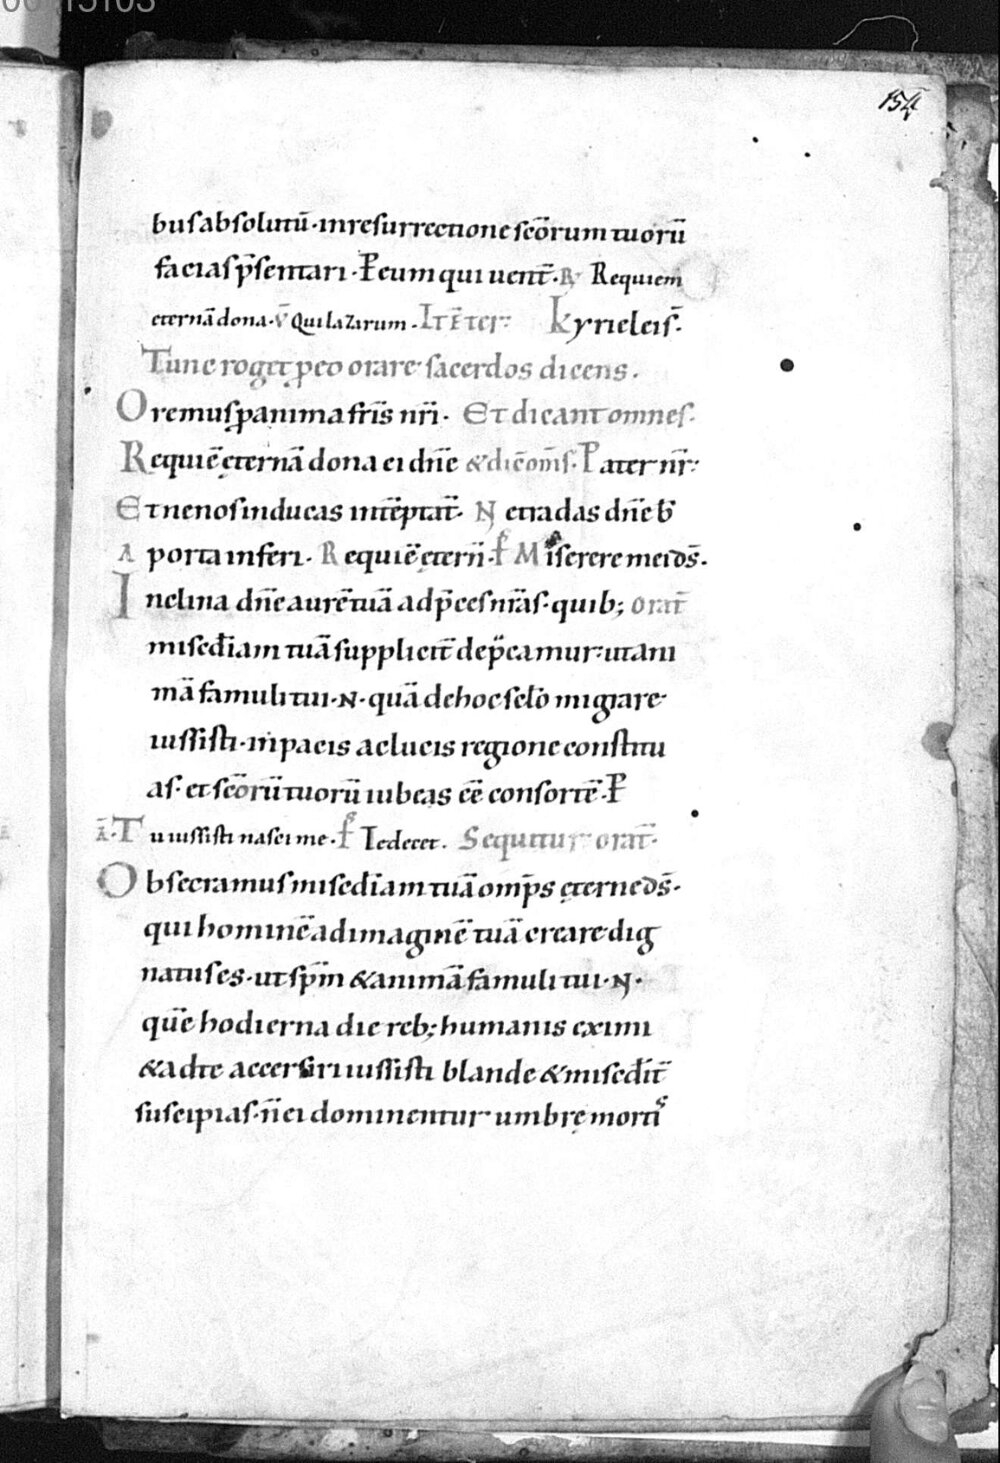 154
busabsolutū·inresurrectione scōrum tuorū
faciasp̄sentari·Peumqui uent̄·R̷ Requiem
eternā dona·v̄ Qui lazarum·It̄ ter kyrieleis̄·
Tunc roget ꝓeo orare sacerdos dicens.
Oremusꝓanima fr̄is nr̄i· Et dicant omnes·
Requiē ęternā dona ei dn̄e &dic̄om̄s·Pater nr̄:
Et nenosinducas intēptat̄· N etradas dn̄e b̄
A porta inferi· Requiē ętern̄· p̄s Miserere mei ds̄·
Inclina dn̄e aurē tuā adp̄ces nr̄as·quib; orat̄
misc̄diam tuā supplicit̄ dep̄camur utani
mā famuli tui·N·quā dehoc sc̄lo migrare
iussisti·inpacis aclucis regione constitu
as·et scōrū tuorū iubeas ēē consortē·P
ā·Tu iussisti nasci me·p̄s Tedecet. Sequitur orat̄·
Obsecramus misc̄diam tuā omp̄s ęterne ds̄·
qui hominē adimaginē tuā creare dig
natus es·ut sp̄m &animā famuli tui·N·
quē hodierna die reb; humanis eximi
&adte accersiri iussisti blande &misc̄dit̄
suscipias·n̄ ei dominentur umbrę mortis